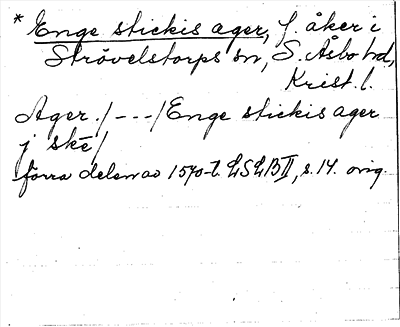 * Enge stickis ager, f. åker i
Strövelstorps sn, S. Åsbo hd,
Krist. l.
Ager. /---/ Enge stickis ager
j skē/
förra delen av 1570-t. LSLB II, s. 14. orig.